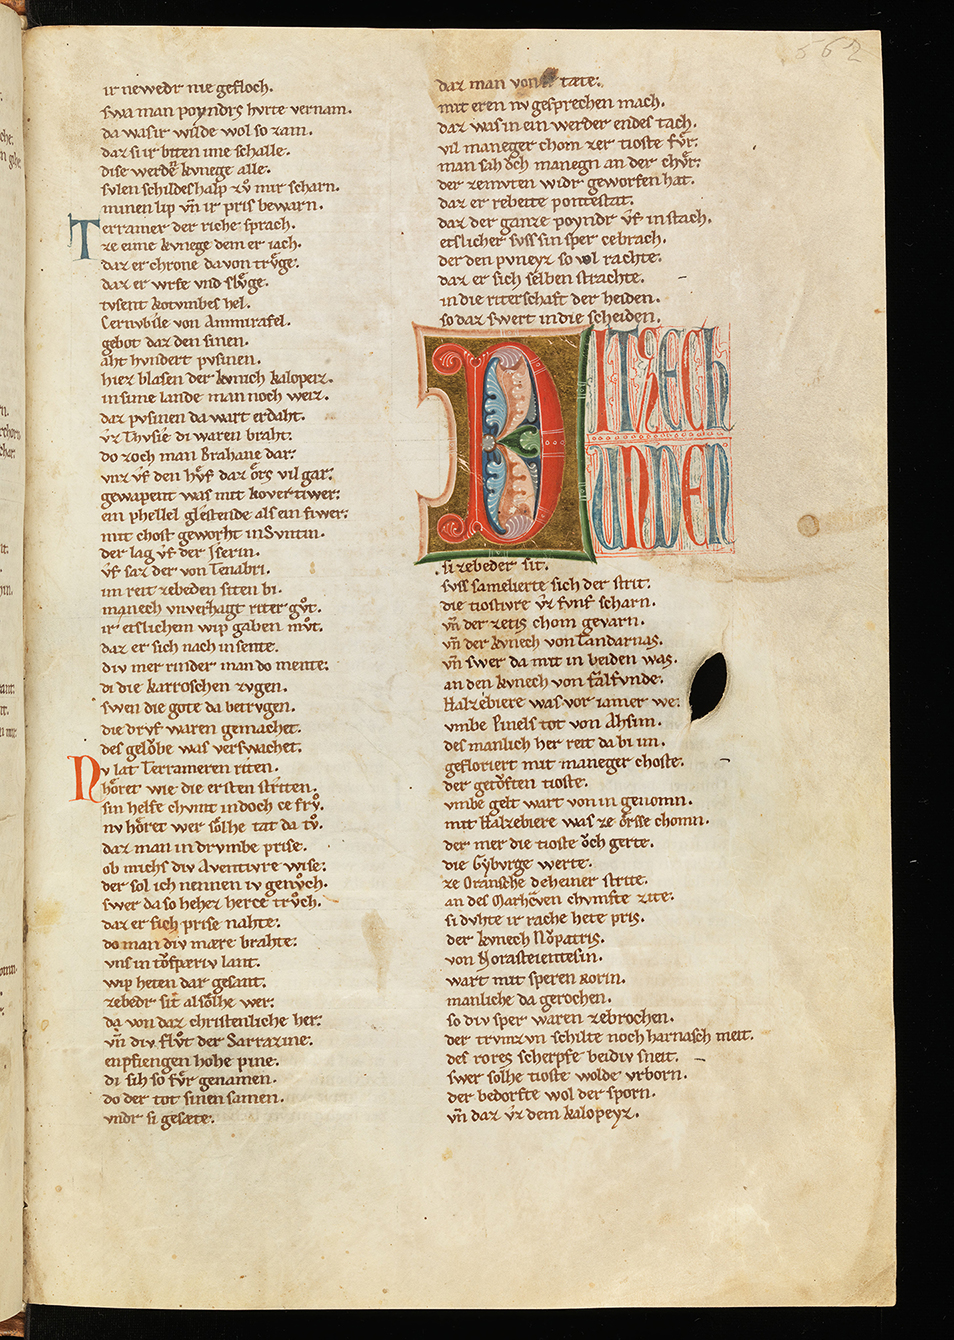 562
ir newedr nie gefloch.
swa man poyndrs hvrte vernam.
da was ir wilde wol so zam.
daz si ir biten ime schalle.
dise werdē kvnege alle.
svlen schildes halp zv̊ mir scharn.
minen lip vn̄ ir pris bewarn.
Terramer der riche sprach.
ze eime kvnege dem er iach.
daz er chrone da von trv̊ge.
daz er wrfe vnd slv̊ge.
tvsent kotvmbes hel.
Cernvbile von Ammirafel.
gebot daz den sinen.
aht hvndert pvsinen.
hiez blasen der kvnich kalopeiz.
in sime lande man noch weiz.
daz pvsinen da wart erdaht.
vz Thvsie di waren braht.
do zoch man Brahane dar.
vnz vf den hv̊f daz ors vil gar.
gewapent was mit kovertiwer.
ein phellel glestende als ein fiwer.
mit chost geworht in Svntin.
der lag vf der Iserin.
vf saz der von Tenabri.
im reit zebeden siten bi.
manech vnverzagt riter gv̊t.
ir etslichem wip gaben mv̊t.
daz er sich nach in sente.
div mer rinder man do mente.
di die karroschen zvgen.
swen die gote da betrvgen.
die drvf waren gemachet.
des gelovbe was verswachet.
Nv lat Terrameren riten.
horet wie die ersten striten.
sin helfe chvmt in doch ce frv̊.
nv horet wer solhe tat da tv̊.
daz man in drvmbe prise.
ob michs div Aventivre wise.
der sol ich nennen iv genv̊ch.
swer da so hehez herce trv̊ch.
daz er sich prise nahte.
do man div mære brahte.
vns in tovfpæriv lant.
wip heten dar gesant.
zebedr sit alsolhe wer.
da von daz christenliche her.
vn̄ div flv̊t der Sarrazine.
enpfiengen hohe pine.
di sih so fvr genamen.
do der tot sinen samen.
vndr si gesæte.
daz man von tæte.
mit eren nv gesprechen mach.
daz was in ein werder endes tach.
vil maneger chom zer tioste fvr.
man sah och manegn an der chvr.
der zemvten widr geworfen hat.
daz er rebette pontestat.
daz der ganze poyndr vf in stach.
etslicher svss sin sper cebrach.
der den pvneyz so wol rachte.
daz er sich selben strachte.
in die riterschaft der heiden.
so daz swert in die scheiden.
DIT ZECH
UNDEN
si zebeder sit.
svss samelierte sich der strit.
die tiostvre vz fvnf scharn.
vn̄ der zetis chom gevarn.
vn̄ der kvnech von Tandarnas.
vn̄ swer da mit in beiden was.
an den kvnech von falfvnde.
Halzebiere was vor iamer we.
vmbe Pinels tot von Ahsim.
des manlich her reit da bi im.
gefloriert mit maneger choste.
der getovften tioste.
vmbe gelt wart von in genomn.
mit Halzebiere was ze orsse chomn.
der mer die tioste och gerte.
die Gybvrge werte.
ze Oransche deheiner strite.
an des Marheven chvmfte zite.
si dvhte ir rache hete pris.
der kvnech Nopatris.
von Horasteientesin.
wart mit speren rorin.
manliche da gerochen.
so div sper waren zebrochen.
der trvnzvn schilte noch harnasch meit.
des rores scherpfe beidiv sneit.
swer solhe tioste wolde vrborn.
der bedorfte wol der sporn.
vn̄ daz vz dem kalopeyz.